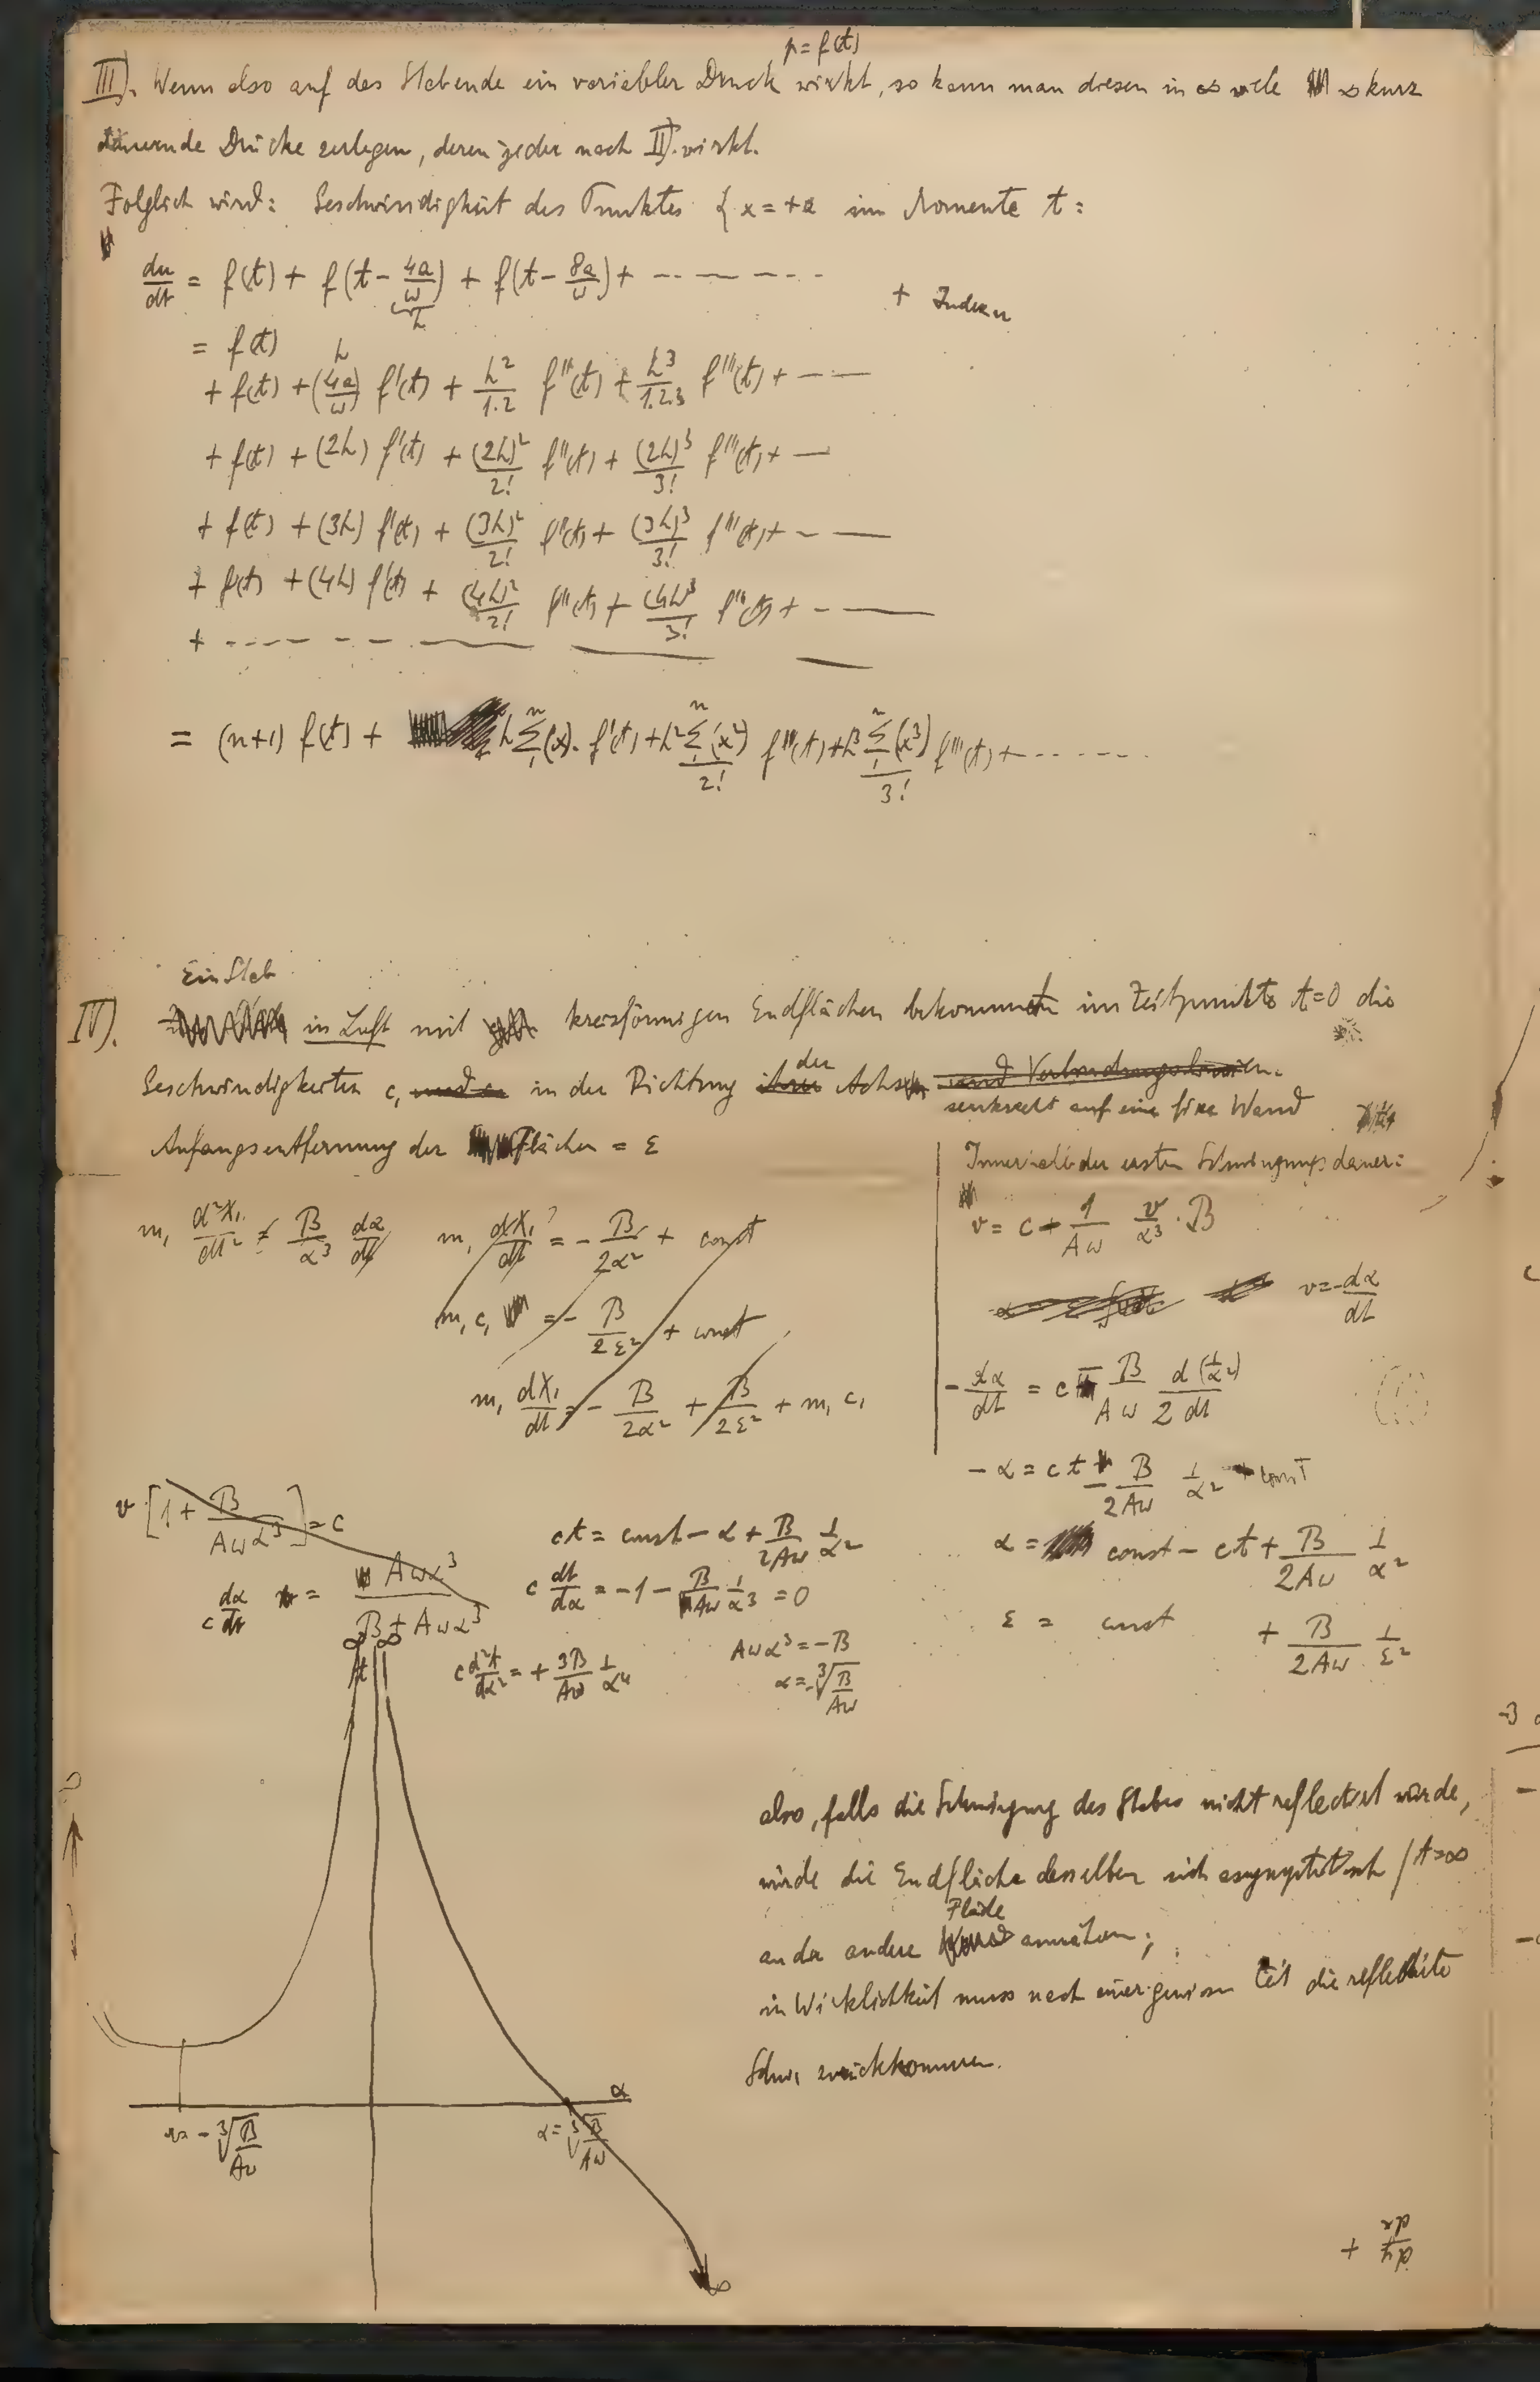 p = f(t)
III). Wenn also auf das Stabende ein variabler Druck wirkt, so kann man diesen in ∞ viele ∞ kurz
dauernde Drücke zerlegen, deren jeder nach II). wirkt.
Folglich wird: Geschwindigkeit des Punktes { x = +a im Momente t:
du/dt = f(t) + f(t - 4a/ω) + f(t - 8a/ω) + - - - - - -
h
+
= f(t)
h
+ f(t) + (4a/ω) f'(t) + h²/1.2 f''(t) + h³/1.2.3 f'''(t) + - - -
+ f(t) + (2h) f'(t) + (2h)²/2! f''(t) + (2h)³/3! f'''(t) + -
+ f(t) + (3h) f'(t) + (3h)²/2! f''(t) + (3h)³/3! f'''(t) + - - -
+ f(t) + (4h) f'(t) + (4h)²/2! f''(t) + (4h)³/3! f'''(t) + - - -
+ - - - - - - - -
= (n+1) f(t) + h Σ₁ⁿ (x). f'(t) + h² Σ₁ⁿ (x²)/2! f''(t) + h³ Σ₁ⁿ (x³)/3! f'''(t) + - - - - - -
Ein Stab
IV). in Luft mit kreisförmigen Endflächen bekommt im Zeitpunkte t=0 die
Geschwindigkeiten c, in der Richtung der Achse
senkrecht auf eine fixe Wand
Anfangsentfernung der Flächen = ε
m₁ d²X₁/dt² = B/α³ dα/dt
m₁ dX₁/dt = - B/2α² + const
m₁ c₁ = - B/2ε² + const
m₁ dX₁/dt = - B/2α² + B/2ε² + m₁ c₁
Innerhalb der ersten Schwingungsdauer:
v = c - 1/Aω v/α³ · B
v = - dα/dt
- dα/dt = c - B/Aω d(1/α²)/2 dt
- α = ct - B/2Aω 1/α² + const
α = const - ct + B/2Aω 1/α²
ε = const + B/2Aω 1/ε²
v [1 + B/Aωα³] = c
c dα/dt = Aωα³/B + Aωα³
ct = const - α + B/2Aω 1/α²
c dt/dα = -1 - B/Aω 1/α³ = 0
c d²t/dα² = + 3B/Aω 1/α⁴
Aωα³ = -B
α = -∛B/Aω
∞ ∞
t
also, falls die Schwingung des Stabes nicht reflectiert würde,
würde die Endfläche desselben sich asymptotisch / t=∞
Fläche
an die andere annähern;
in Wirklichkeit muss nach einer gewissen Zeit die reflectirte
Schw. zurückkommen.
α
- ∛B/Aω
α = ∛B/Aω
∞